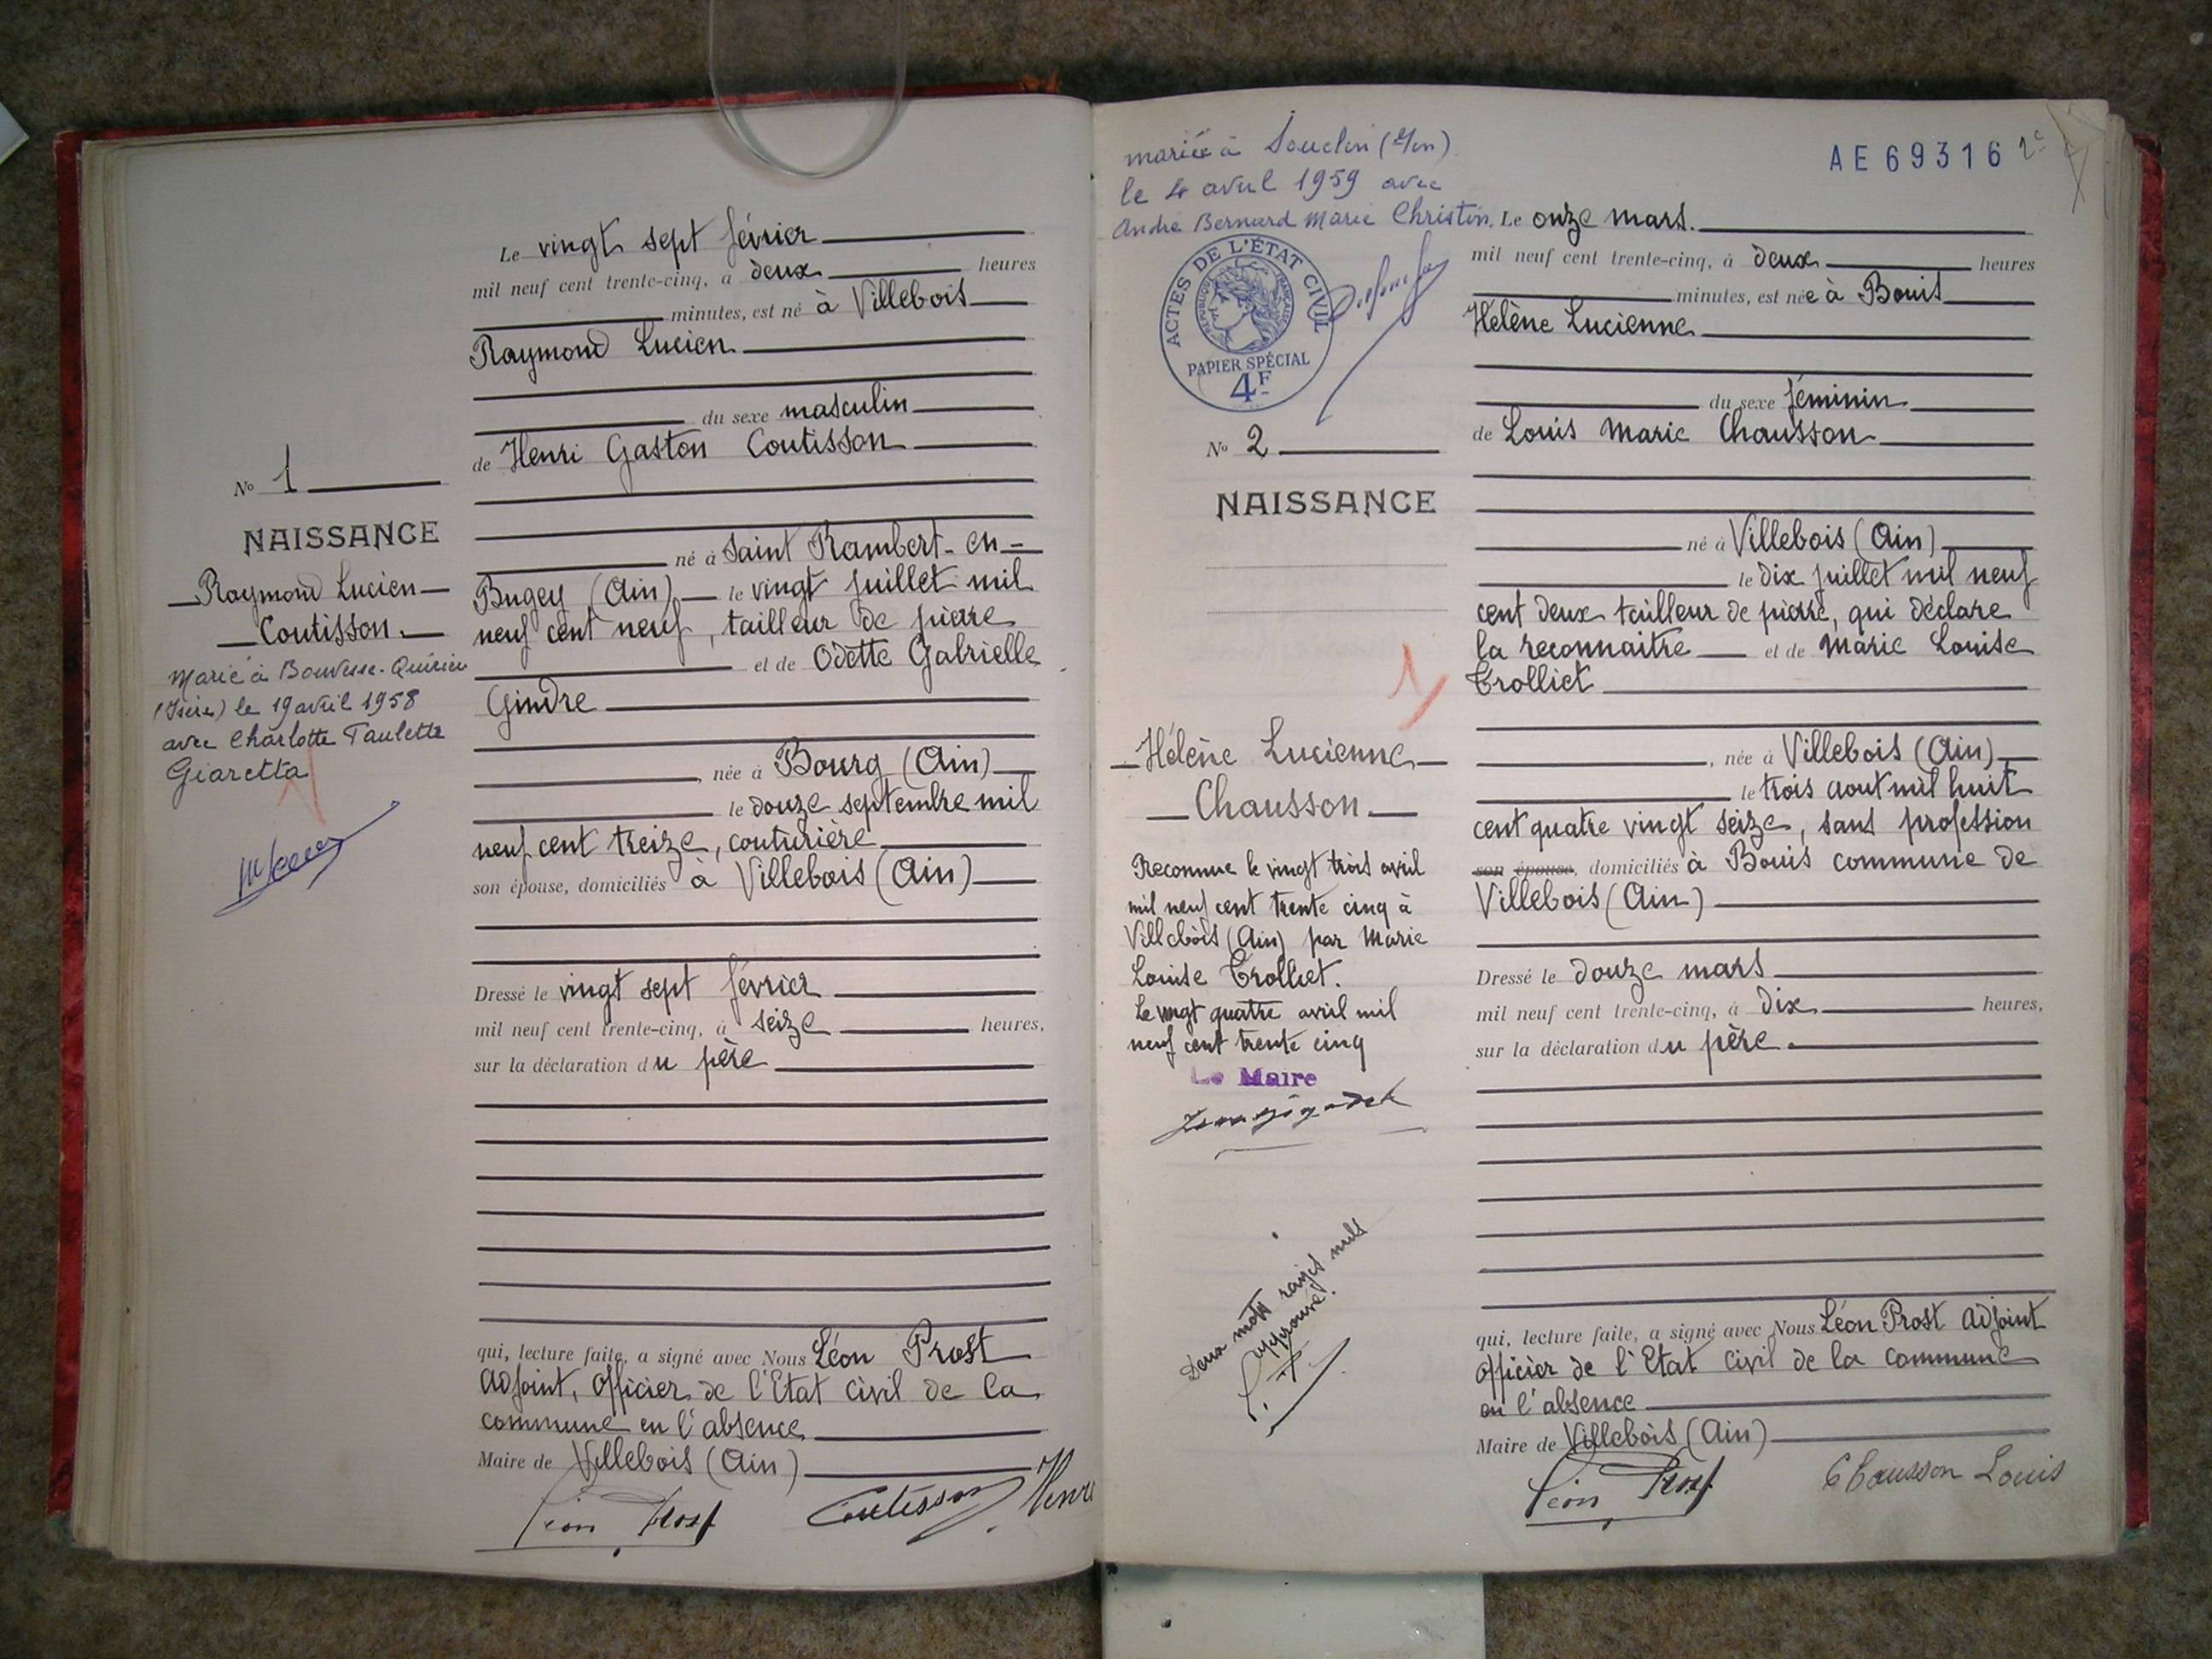 Le vingt sept février
mil neuf cent trente-cinq, à deux heures
minutes, est né à Villebois
Raymond Lucien
du sexe masculin
de Henri Gaston Coutisson
né à Saint Rambert-en-
Bugey (Ain) le vingt juillet mil
neuf cent neuf, tailleur de pierre
et de Odette Gabrielle
Gindre
née à Bourg (Ain)
le douze septembre mil
neuf cent treize, couturière
son épouse, domiciliés à Villebois (Ain)
Dressé le vingt sept février
mil neuf cent trente-cinq, à seize heures,
sur la déclaration du père
qui, lecture faite, a signé avec Nous Léon Prost
Adjoint, Officier de l'Etat civil de la
commune en l'absence
Maire de Villebois (Ain)
Léon Prost
Coutisson Henri
No 1
NAISSANCE
Raymond Lucien
Coutisson
Marié à Bouvesse-Quirieu
(Isère) le 19 avril 1958
avec Charlotte Paulette
Giaretta
mariée à Souclin (Ain)
le 4 avril 1959 avec
André Bernard Marie Christin.
ACTES DE L'ÉTAT CIVIL
RÉPUBLIQUE FRANÇAISE
PAPIER SPÉCIAL
4F
AE69316
No 2
NAISSANCE
Hélène Lucienne
Chausson
Reconnue le vingt trois avril
mil neuf cent trente cinq à
Villebois (Ain) par Marie
Louise Trolliet.
Le vingt quatre avril mil
neuf cent trente cinq
Le Maire
Deux mots rayés nuls
approuvé.
L. P.
Le onze mars.
mil neuf cent trente-cinq, à deux heures
minutes, est née à Bouis
Hélène Lucienne
du sexe féminin
de Louis Marie Chausson
né à Villebois (Ain)
le dix juillet mil neuf
cent deux tailleur de pierre, qui déclare
la reconnaitre et de Marie Louise
Trolliet
, née à Villebois (Ain)
le trois aout mil huit
cent quatre vingt seize, sans profession
son épouse, domiciliés à Bouis commune de
Villebois (Ain)
Dressé le douze mars
mil neuf cent trente-cinq, à dix heures,
sur la déclaration du père.
qui, lecture faite, a signé avec Nous Léon Prost Adjoint
Officier de l'Etat civil de la commune
en l'absence
Maire de Villebois (Ain)
Léon Prost
Chausson Louis